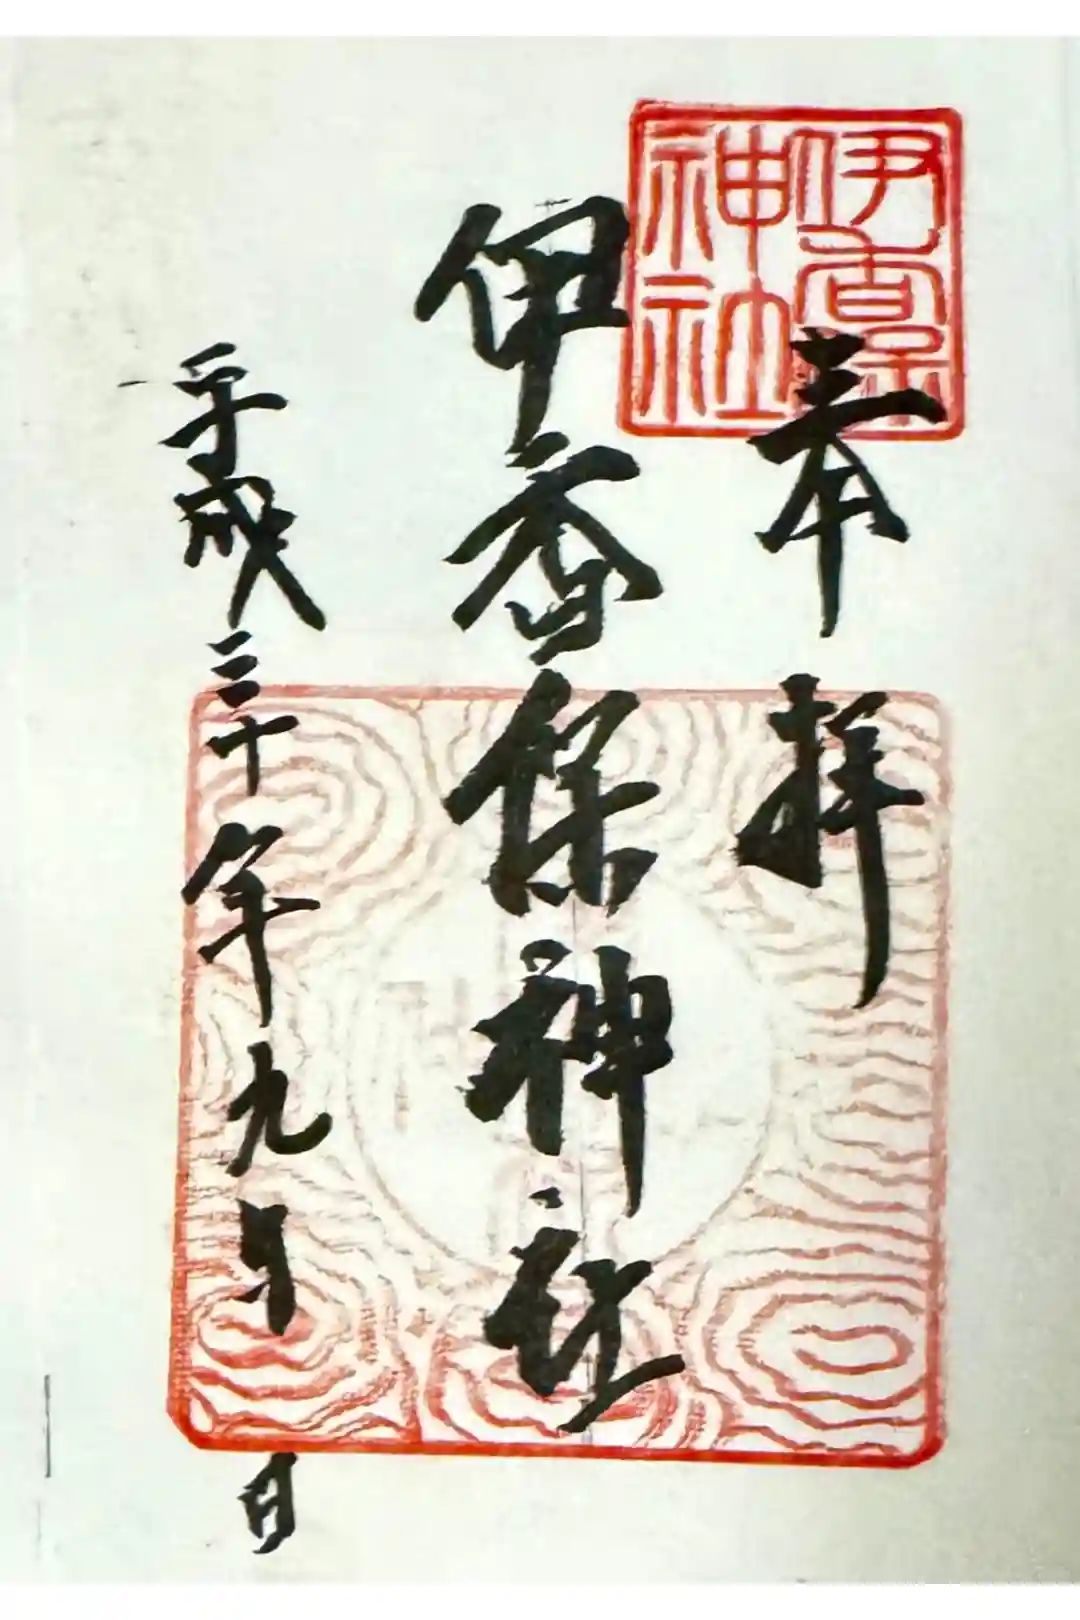 奉拝
伊香保
神社
伊香保神社
平成三十年九月 日